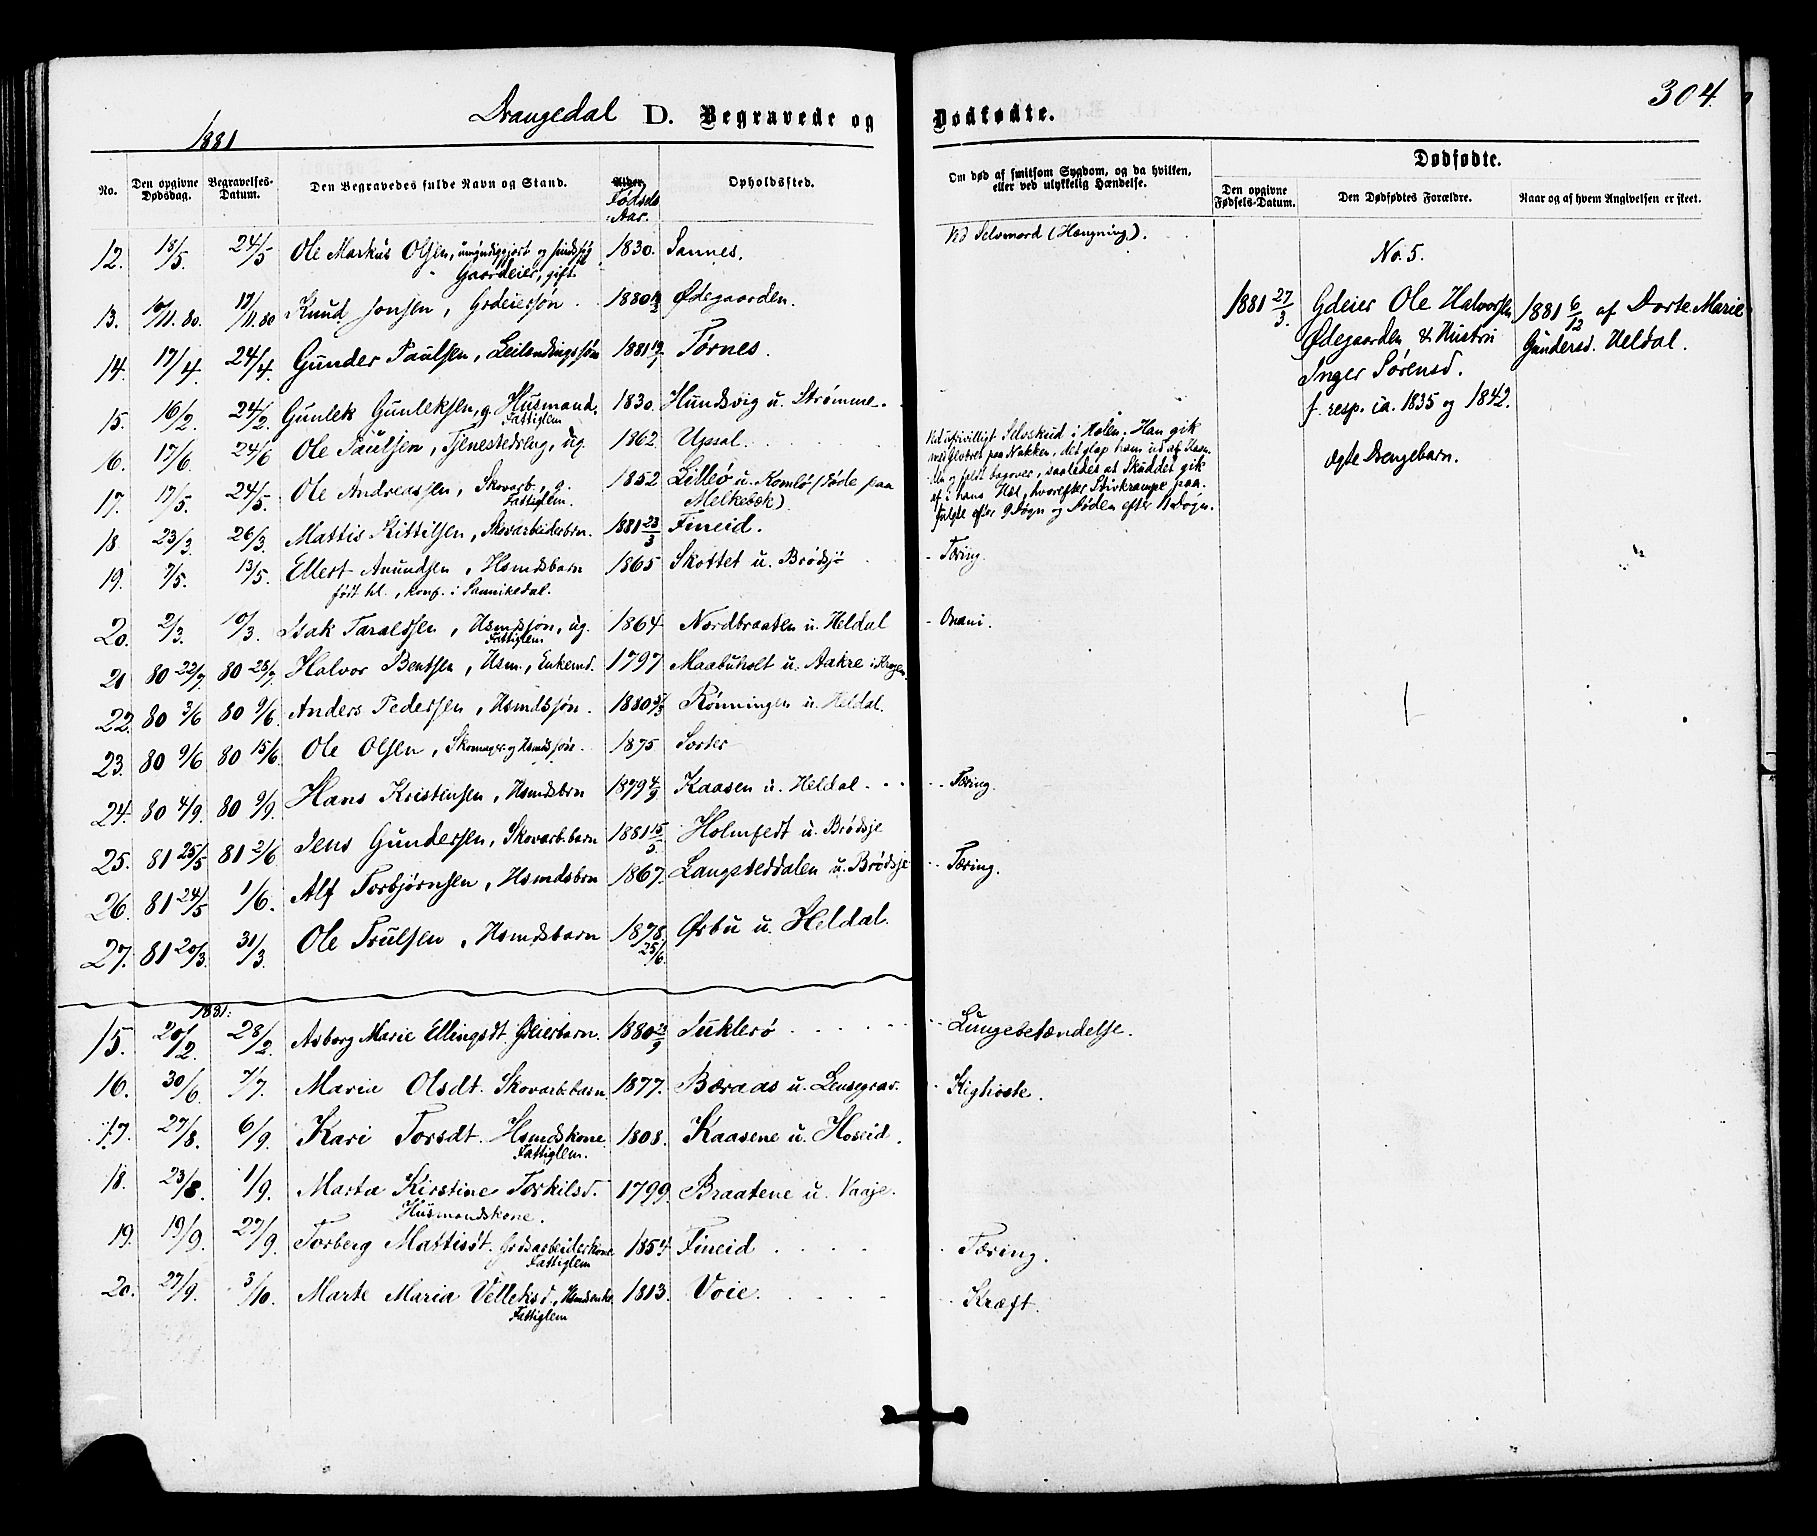 304.
Drangedal D. Begravede og Dødfødte.
1881
No. Den opgivne Dødsdag. Begravelses-Datum. Den Begravedes fulde Navn og Stand. Alder. Fødsels Aar. Opholdssted. Om død af smitsom Sygdom, og da hvilken, eller ved ulykkelig Hændelse. Dødfødte.
Den opgivne Fødsels-Datum. Den Dødfødtes Forældre. Naar og af hvem Angivelsen er skeet.
12. 18/5. 24/5 Ole Markus Olsen, umyndiggjort og sindssyg 1830. Sannes. Ved Selvmord (Hængning).
Gaardeier, gift.
13. 10/11. 80. 17/11. 80 Knud Jonsen, Grdeiersøn. 1880 Ødegaarden.
14. 17/4. 24/4. Gunder Paulsen, Leilendingssøn 1881 Tørnes.
15. 16/2. 24/2. Gunlek Gunleksen, g. Husmand. 1830. Hundsvig u. Strømme.
Fattiglem
16. 17/6. 24/6 Ole Paulsen, Tjenestedreng, ug. 1862. Upsal.
17. 17/5. 24/5. Ole Andreassen, Skovarb., g. 1852 Lillø u. Komlø (døde paa
Fattiglem. Melkebæk)
Ved ufrivilligt Selvskud i Hælen. Han gik
med Geværet paa Nakken, det glap ham ud af Haan-
den og faldt bagover, saaledes at Skuddet gik
af i hans Hæl, hvorefter Stivkrampe paa-
fulgte efter 9 Døgn og Døden efter Døgn.
18 23/3. 26/3. Mattis Kittilsen, Skovarbeiderbrn. 1881 23/3 Fineid.
19. 7/5. 13/5. Ellert Anundsen, Hsmdsbarn 1865 Skottet u. Brødsjø - Tæring.
født hl., konf. i Sannikedal.
20. 2/3. 10/3. Isak Taraldsen, Hsmdssøn, ug. 1864 Nordbraaten u. Heldal - Onani.
Fattiglem
21 80 22/7 80 28/7. Halvor Bentsen, Hsm., Enkemd. 1797 Maabuholt u. Aakre i Kragerø.
22. 80 3/6 80 9/6. Anders Pedersen, Hsmdssøn. 1880 Rønningen u. Heldal.
23. 80 9/6 80 15/6. Ole Olsen, Skomager. og Hsmdssøn. 1875 Sorter
24. 80 4/9. 80 9/9. Hans Kristensen, Hsmdsbrn 1879 4/9. Kaasen u. Heldal. Tæring.
25. 81 25/5 81 2/6 Jens Gundersen, Skovarb.barn 1881 15/5. Holmfedt u. Brødsje
26. 81 24/5 1/6. Alf Torbjørnsen, Hsmdsbrn 1867. Langsteddalen u. Brødsje - Tæring.
27. 81 20/3. 31/3. Ole Trulsen, Hsmdsbarn 1878. 25/6. Ørbu u. Heldal.
No. 5.
1881 27/3. Gdeier Ole Halvorsen 1881 6/12 af Dorte Marie
Ødegaarden & Hustru Gundersd. Heldal.
Inger Sørensd.
f. resp. ca. 1835 og 1842.
ægte Drengebarn.
1881.
15. 20/2. 28/2. Asborg Marie Ellingsdt. Gdeierbarn. 1880 2/9 Tuklerø - Lungebetændelse.
16. 30/6. 7/7. Maria Olsdt. Skovarb.barn 1877. Bæraas u. Lensegrav. - Kighoste.
17. 27/8. 6/9. Kari Torsdt. Hsmdskone 1808. Kaasene u. Hoseid.
Fattiglem.
18. 23/8. 1/9. Marta Kirstine Torkilsd. 1799. Braatene u. Vaaje.
Husmandskone.
19. 19/9. 27/9. Torberg Mattisdt. Grdsarbeiderkone 1854 Fineid - Tæring.
Fattiglem
20. 27/9. 3/10. Marte Maria Velleksd., Hsmdsenke. 1813. Voie. - Kræft.
Fattiglem